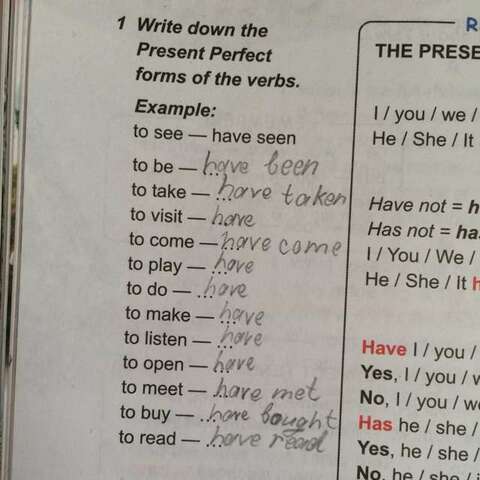 R
1 Write down the
Present Perfect
forms of the verbs.
Example:
to see — have seen
to be — have been
to take — have taken
to visit — have
to come — have come
to play — have
to do — have
to make — have
to listen — have
to open — have
to meet — have met
to buy — have bought
to read — have read
THE PRESE
I / you / we /
He / She / It
Have not = h
Has not = ha
I / You / We /
He / She / It h
Have I / you /
Yes, I / you / w
No, I / you / we
Has he / she /
Yes, he / she /
No, he / she / i